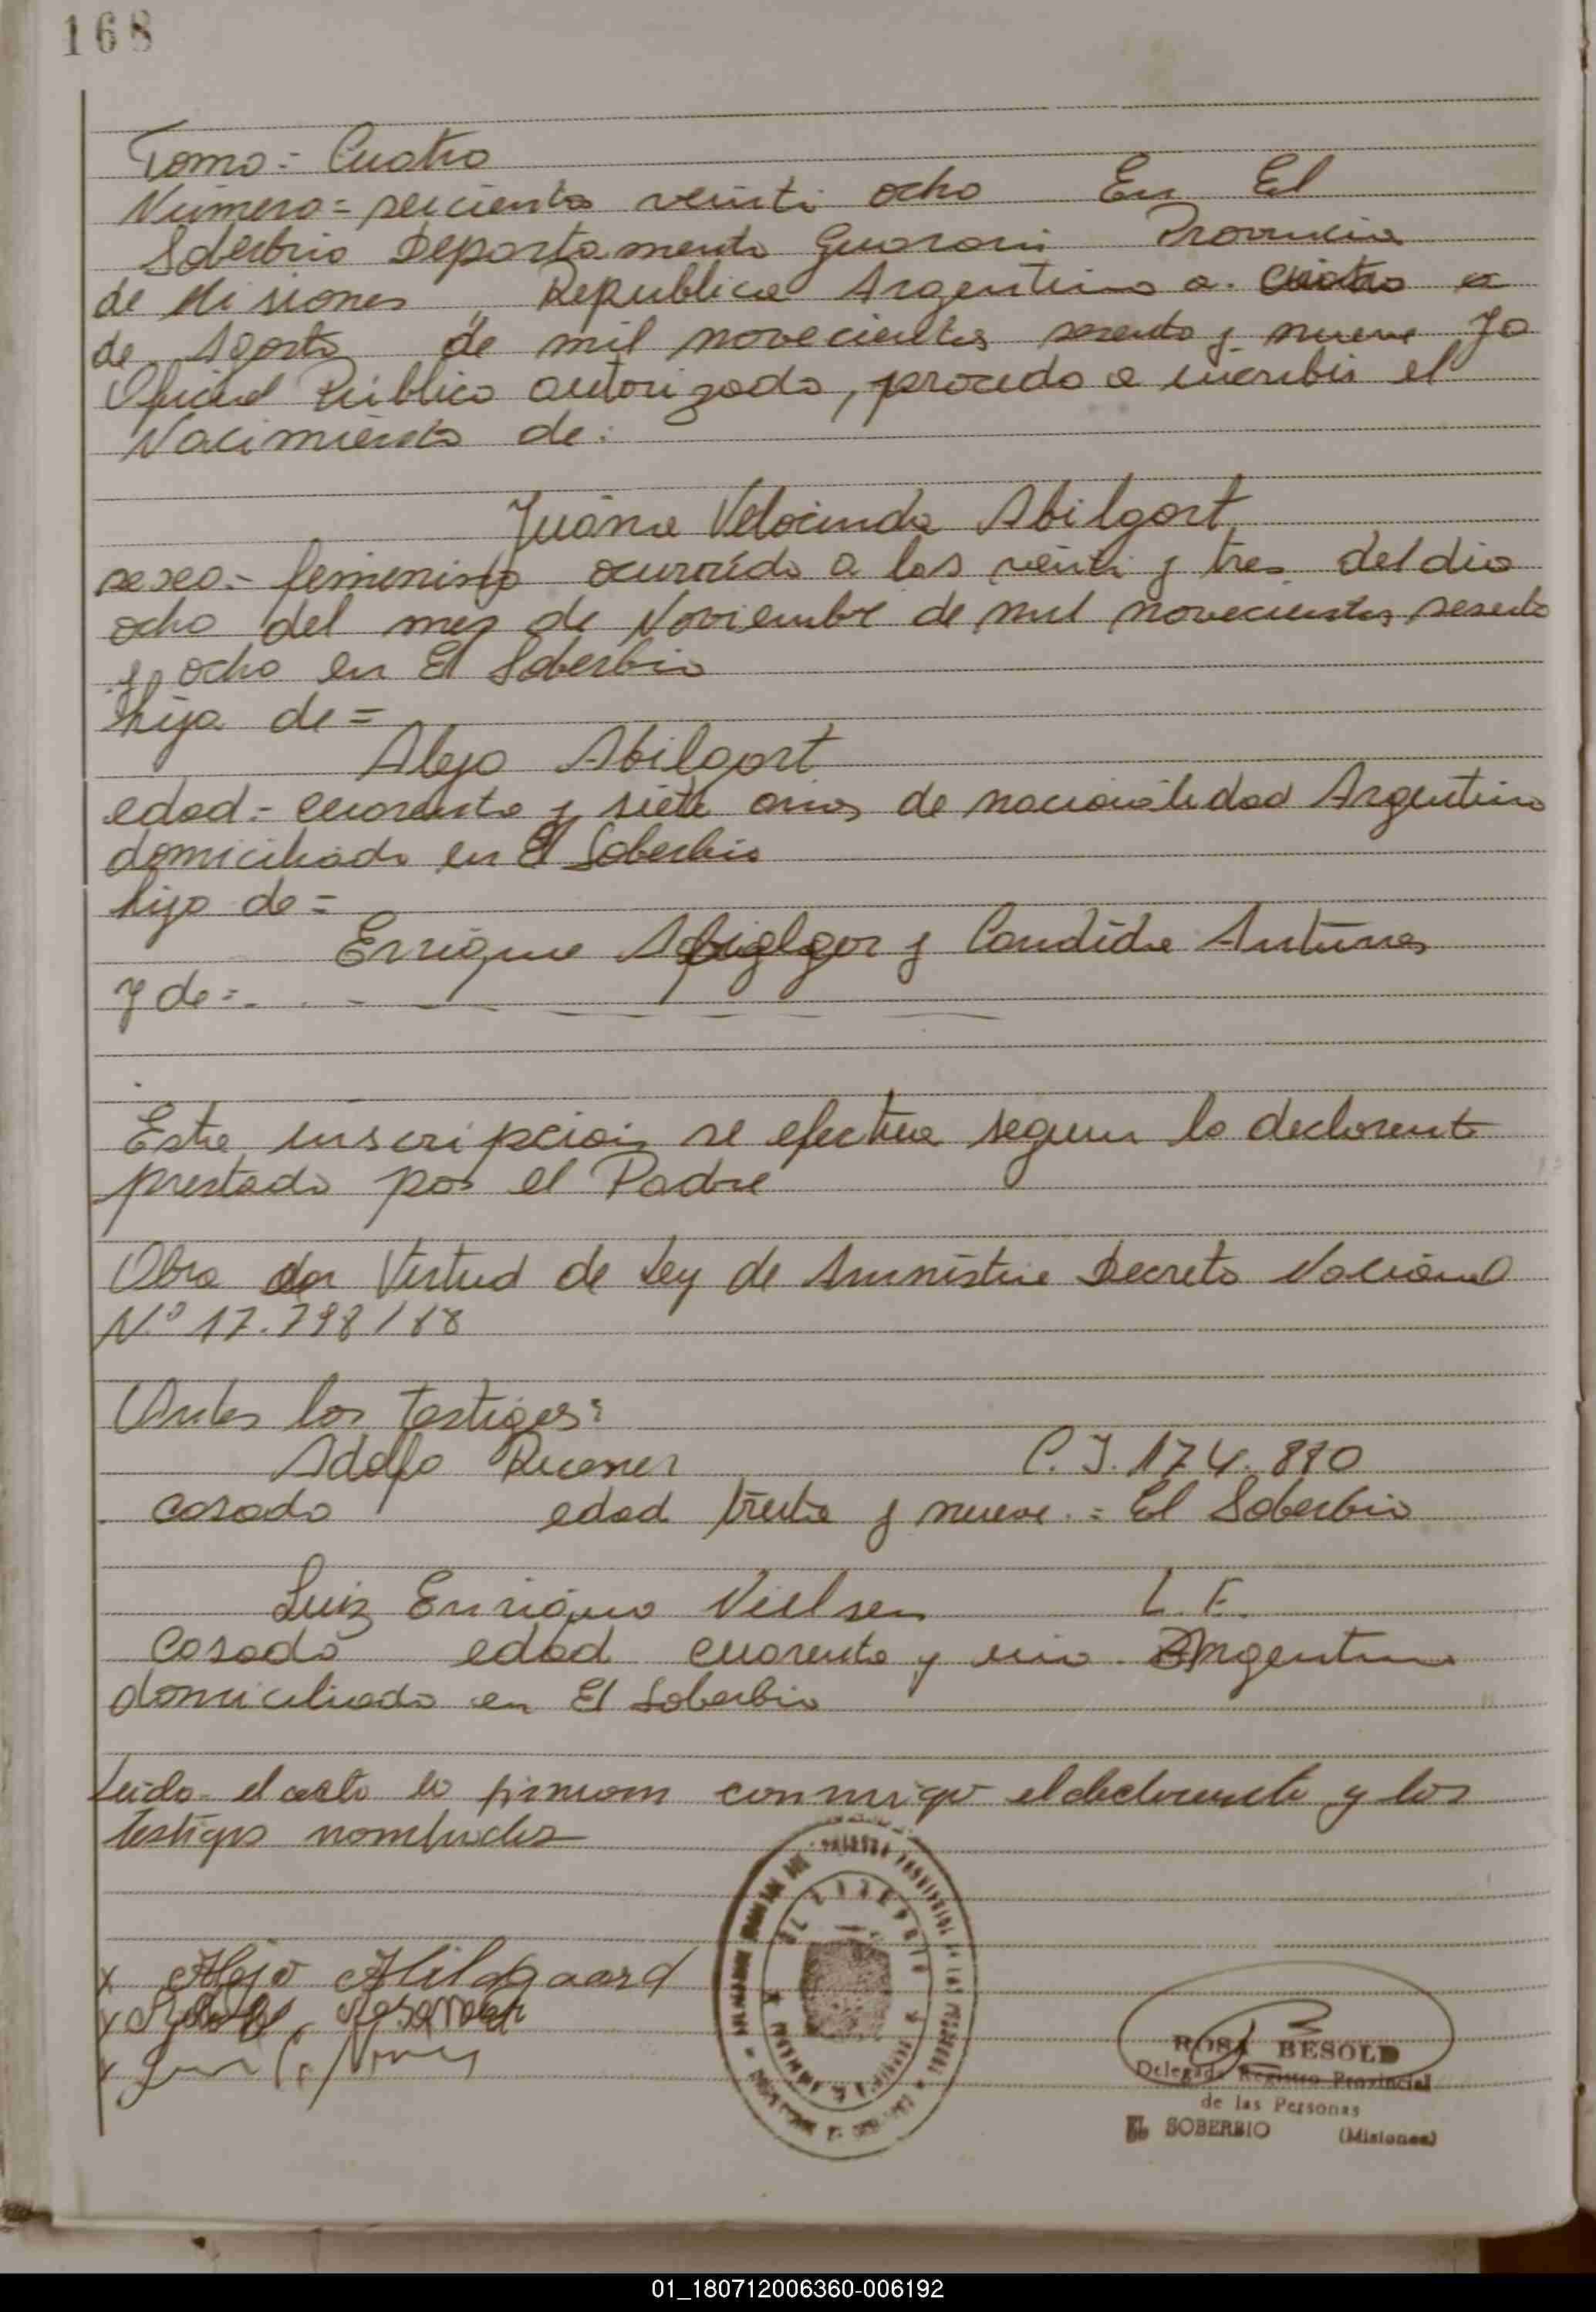 168
Tomo = Cuatro
Número = seicientos veinti ocho En El
Soberbio Departamento Guarani Provincia
de Misiones, Republica Argentina a cuatro
de Agosto de mil novecientos sesenta y nueve Yo
Oficial Público autorizado, procedo a incribir el
Nacimiento de:
Juána Velocinda Abilgort
sexo = femenino ocurrído a las veinti y tres del dia
ocho del mes de Noviembre de mil novecientos sesenta
y ocho en El Soberbio
hija de =
Alejo Abilgort
edad = cuarenta y siete años de nacionalidad Argentino
domiciliado en El Soberbio
hijo de =
Enrique y Candída Antúnes
y de =
Esta inscripción se efectua segun lo declarente
prestado por el Padre
Obra Virtud de Ley de Amnistia Decreto Nacional
Nº 17.798/68
Antes los testigos:
Adolfo C.I. 174.880
casado edad treita y nueve = El Soberbio
Luiz Enrique Nielsen L.E.
Casado edad cuarenta y uno Argentino
domiciliado en El Soberbio
Leido el acto lo firmam conmigo el declarente y los
testigos nombrados
x Alejo Abildgaard
x
x
ROSA BESOLD
Delegada Registro Provincial
de las Personas
EL SOBERBIO (Misiones)
01_180712006360-006192